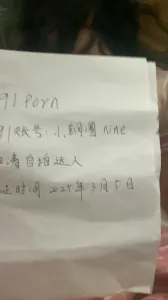 91 Porn
91账号:小铜圈 Nine
青自拍达人
证时间 2025年3月5日